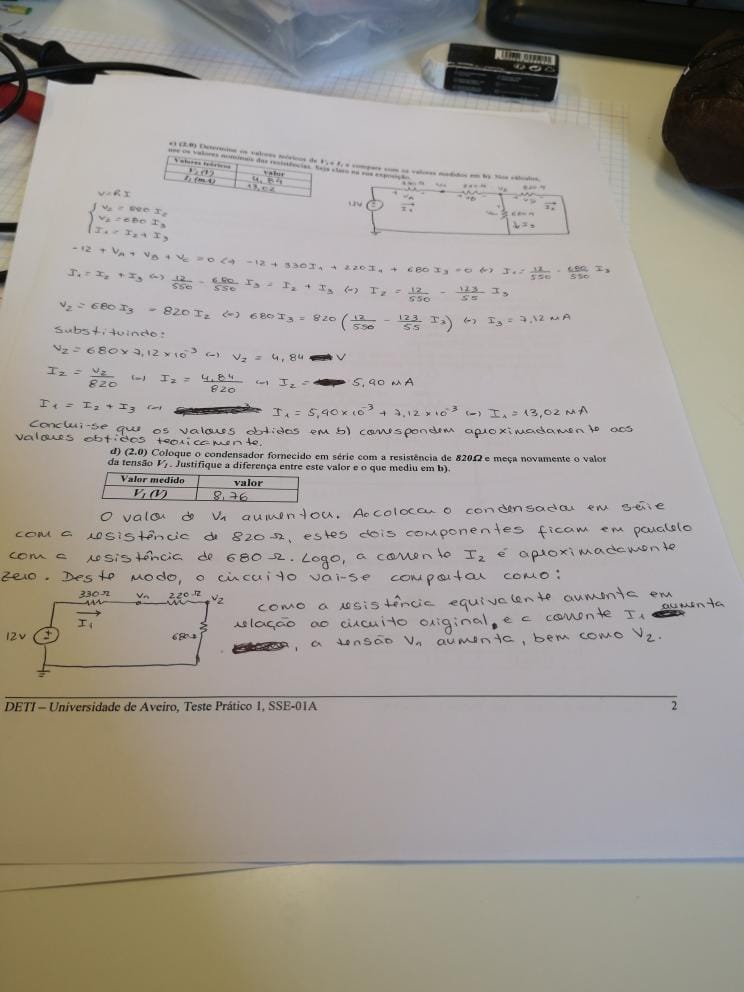 c) (2.0) Determine os valores teóricos de V₂ e I₁ e compare com os valores medidos em b). Nos cálculos,
use os valores nominais das resistências. Seja claro na sua exposição.
Valores teóricos valor
V₂ (V) 4,84
I₁ (mA) 13,02
12V
330Ω V₁ 220Ω V₂ 820Ω
I₁ V_A V_B I₂
680Ω
I₃
V=RI
V₂ = 820 I₂
V₂ = 680 I₃
I₁ = I₂ + I₃
-12 + V_A + V_B + V_C = 0 (=) -12 + 330I₁ + 220I₁ + 680I₃ = 0 (=) I₁ = 12/550 - 680/550 I₃
I₁ = I₂ + I₃ (=) 12/550 - 680/550 I₃ = I₂ + I₃ (=) I₂ = 12/550 - 123/55 I₃
V₂ = 680I₃ = 820I₂ (=) 680I₃ = 820 (12/550 - 123/55 I₃) (=) I₃ = 7,12 mA
Substituindo:
V₂ = 680 × 7,12 × 10⁻³ (=) V₂ = 4,84 V
I₂ = V₂/820 (=) I₂ = 4,84/820 (=) I₂ = 5,90 mA
I₁ = I₂ + I₃ (=) I₁ = 5,90×10⁻³ + 7,12×10⁻³ (=) I₁ = 13,02 mA
Conclui-se que os valores obtidos em b) correspondem aproximadamente aos
valores obtidos teoricamente.
d) (2.0) Coloque o condensador fornecido em série com a resistência de 820Ω e meça novamente o valor
da tensão V₁. Justifique a diferença entre este valor e o que mediu em b).
Valor medido valor
V₁ (V) 8,76
O valor de V₁ aumentou. Ao colocar o condensador em série
com a resistência de 820 Ω, estes dois componentes ficam em paralelo
com a resistência de 680 Ω. Logo, a corrente I₂ é aproximadamente
zero. Deste modo, o circuito vai-se comportar como:
330Ω V₁ 220Ω V₂
I₁
12V
680Ω
como a resistência equivalente aumenta em
relação ao circuito original, e a corrente I₁ aumenta
, a tensão V₁ aumenta, bem como V₂.
DETI – Universidade de Aveiro, Teste Prático 1, SSE-01A 2